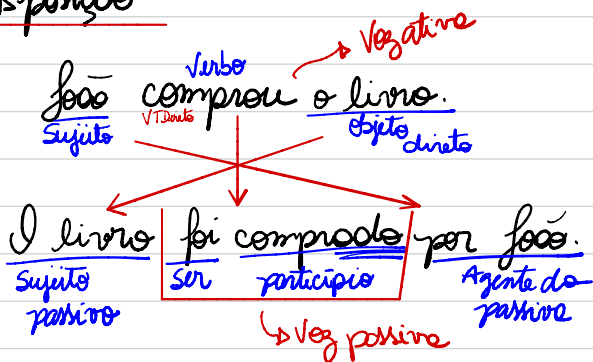 Voz ativa
Verbo
João comprou o livro.
Sujeito VTDireto objeto
direto
O livro foi comprado por João.
Sujeito ser particípio Agente da
passivo passiva
Voz passiva